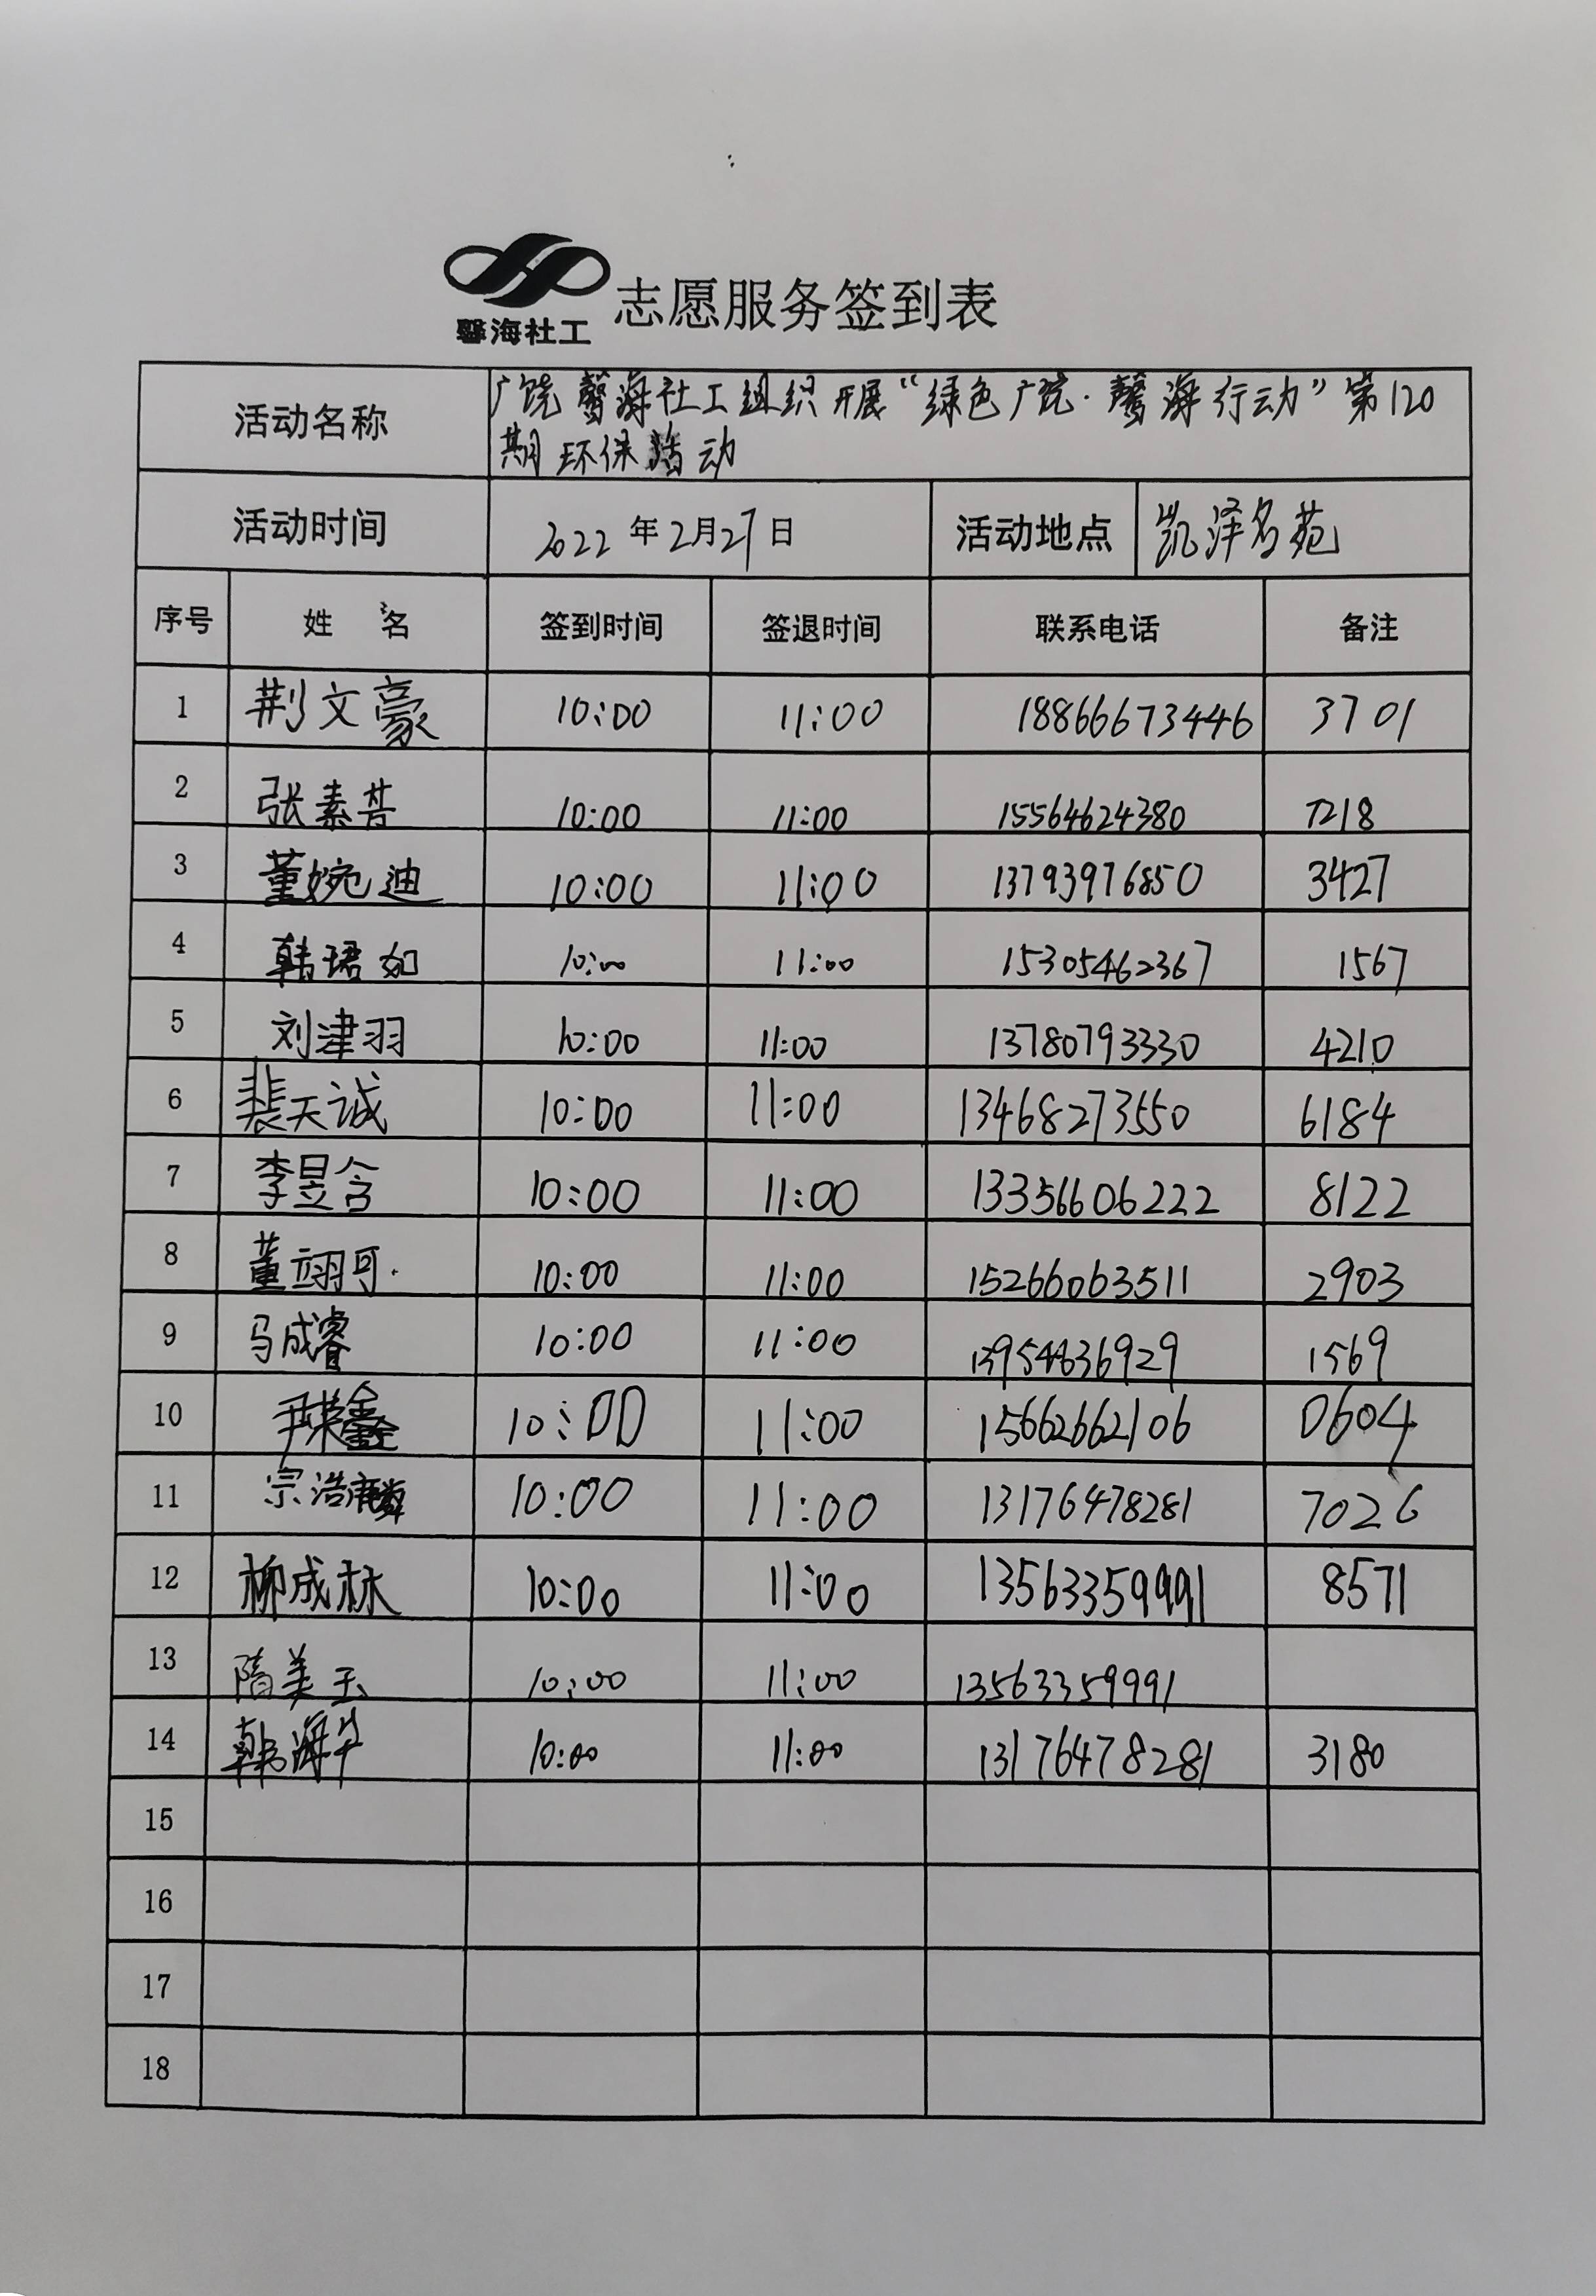 馨海社工 志愿服务签到表
活动名称 广饶馨海社工组织开展“绿色广饶·馨海行动”第120
期环保活动
活动时间 2022年2月27日 活动地点 凯泽名苑
序号 姓名 签到时间 签退时间 联系电话 备注
1 荆文豪 10:00 11:00 18866673446 3701
2 张素 10:00 11:00 15564624380 7218
3 董婉迪 10:00 11:00 13793976850 3427
4 韩珺如 10:00 11:00 15305462367 1567
5 刘津羽 10:00 11:00 13780793330 4210
6 裴天诚 10:00 11:00 13468273550 6184
7 李昱含 10:00 11:00 13356606222 8122
8 董翊可 10:00 11:00 15266063511 2903
9 马成睿 10:00 11:00 13954636929 1569
10 尹荣鑫 10:00 11:00 15662662106 0604
11 宗浩麟 10:00 11:00 13176478281 7026
12 柳成林 10:00 11:00 13563359991 8571
13 隋美玉 10:00 11:00 13563359991
14 韩海牛 10:00 11:00 13176478281 3180
15
16
17
18